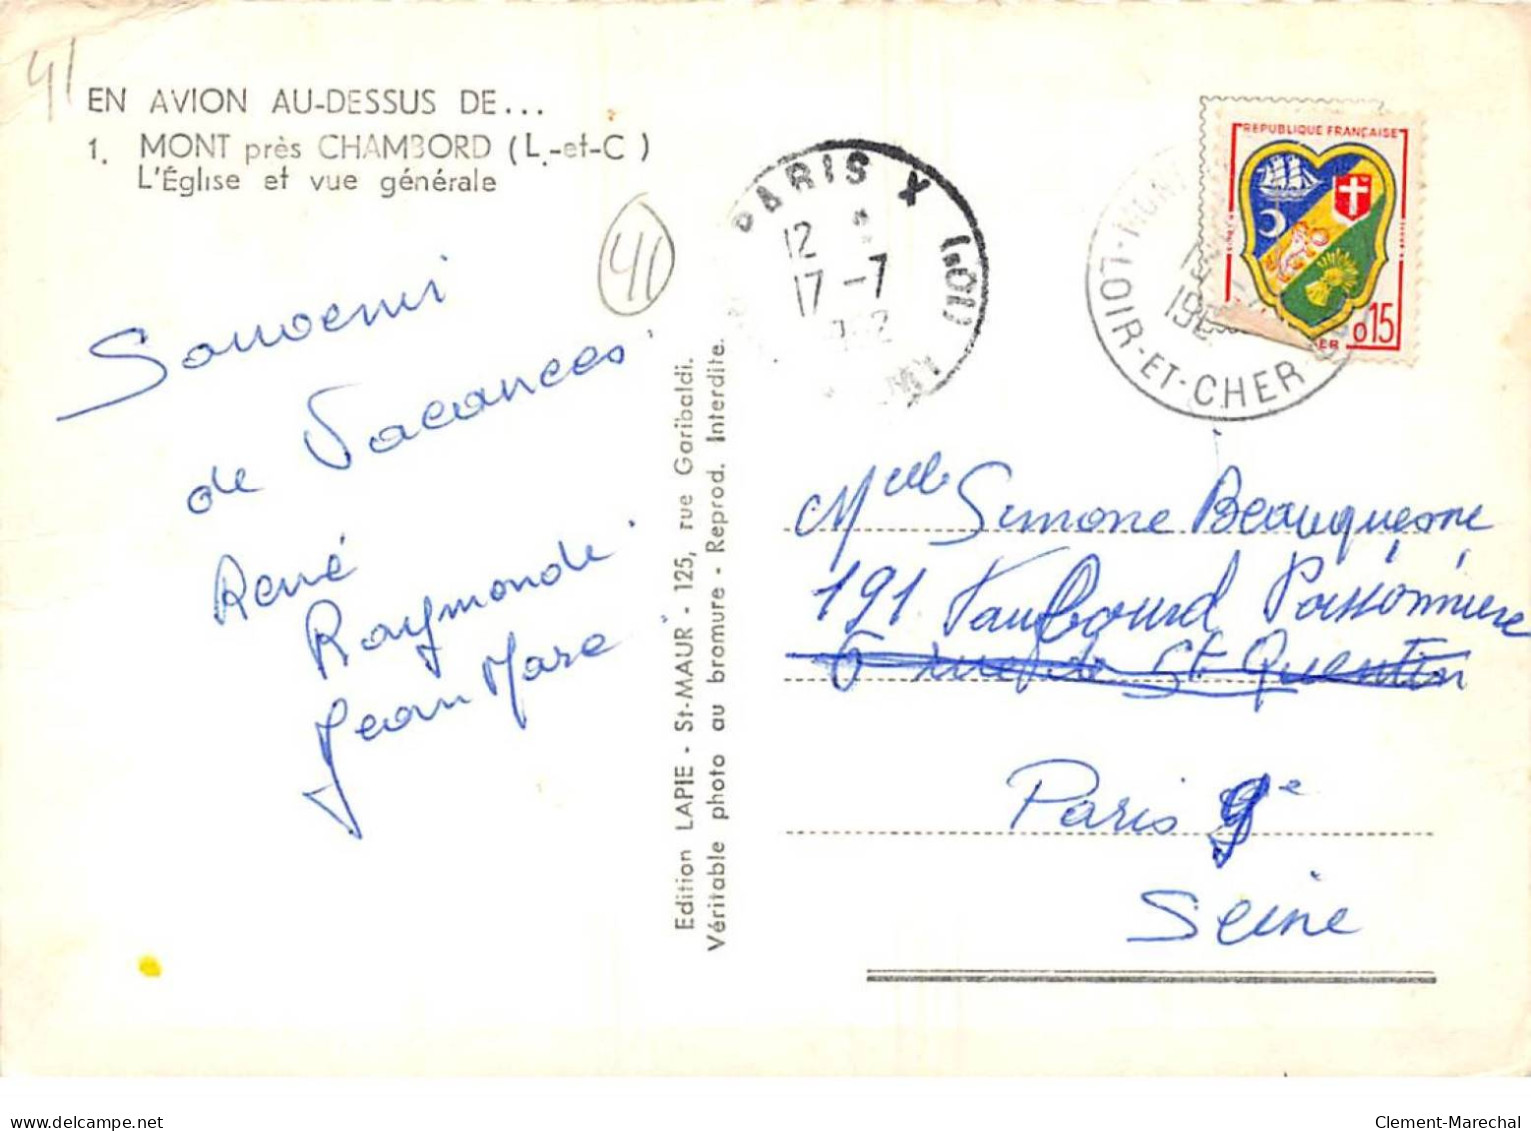 41
EN AVION AU-DESSUS DE...
1. MONT près CHAMBORD (L.-et-C)
L'Église et vue générale
41
Souvenir
de Vacances
René
Raymonde
Jean Marc
Edition LAPIE - St-MAUR - 125, rue Garibaldi.
Véritable photo au bromure - Reprod. Interdite.
PARIS X
12
17-7
LOIR-ET-CHER
REPUBLIQUE FRANÇAISE
0,15
Melle Simone Beauquesne
191 Faubourd Poissonnière
6 rue de St Quentin
Paris 9e
Seine
Clement-Marechal